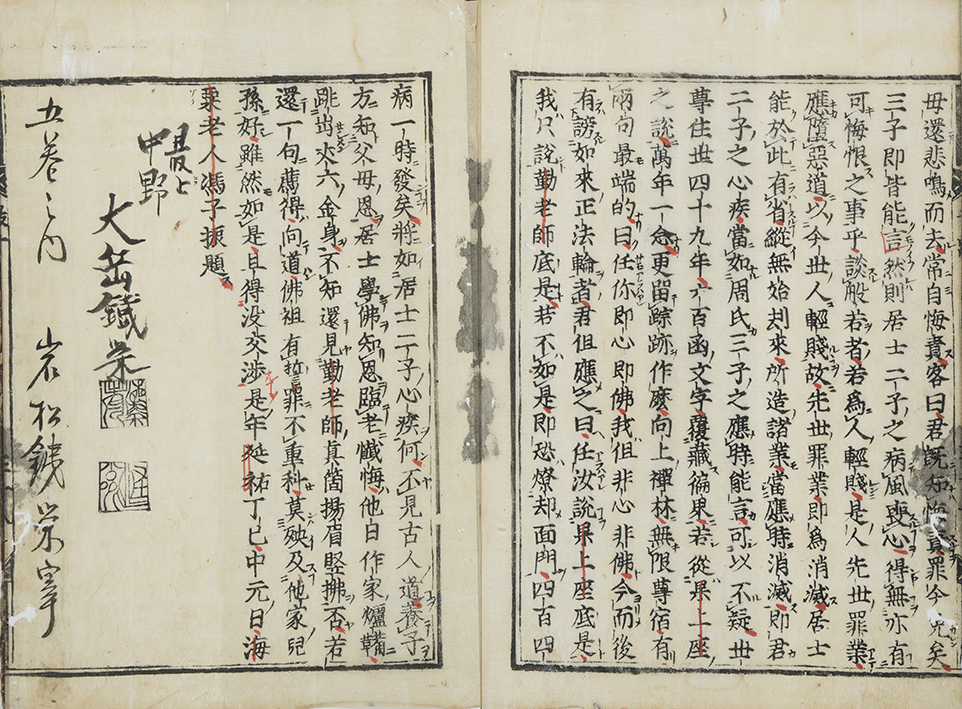 母還悲鳴而去常自悔責客曰君既知悔責罪今免矣
三子即皆能言然則居士二子之病風喪心得無亦有
可悔恨之事乎談般若者若為人輕賤是人先世罪業
應墮惡道以今世人輕賤故先世罪業即為消滅居士
能於此有省縱無始刦來所造諸業當應時消滅即君
二子之心疾當如周氏三子之應時能言可以不疑世
尊住世四十九年六百函文字覆藏徧界若從果上座
之說萬年一念更留蹤跡作麼向上禪林無限尊宿有
兩句最端的曰任你即心即佛我但非心非佛今而後
有謗如來正法輪者君但應之曰任汝說果上座底是
我只說勤老師底是若不如是即恐燎却面門四百四
病一時發矣將如居士二子心疾何不見古人道養子
方知父母恩居士學佛知恩臨老懺悔他日作家爐韛
跳出丈六金身不知還見勤老師真箇揚眉豎拂否若
還一句薦得向道佛祖有誓罪不重科莫殃及他家兒
孫好雖然如是且得没交涉是年延祐丁巳中元日海
粟老人馮子振題
最上
中野
大岳鐵栄
五卷之内 岩松鐵栄宰